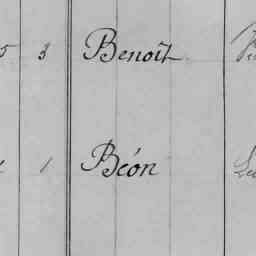 5 3 Benoît
1 Béon